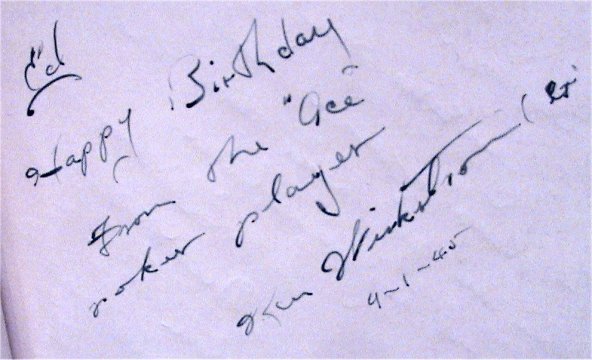 Ed
Happy Birthday
from the "Ace"
poker player
Ken
9-1-45